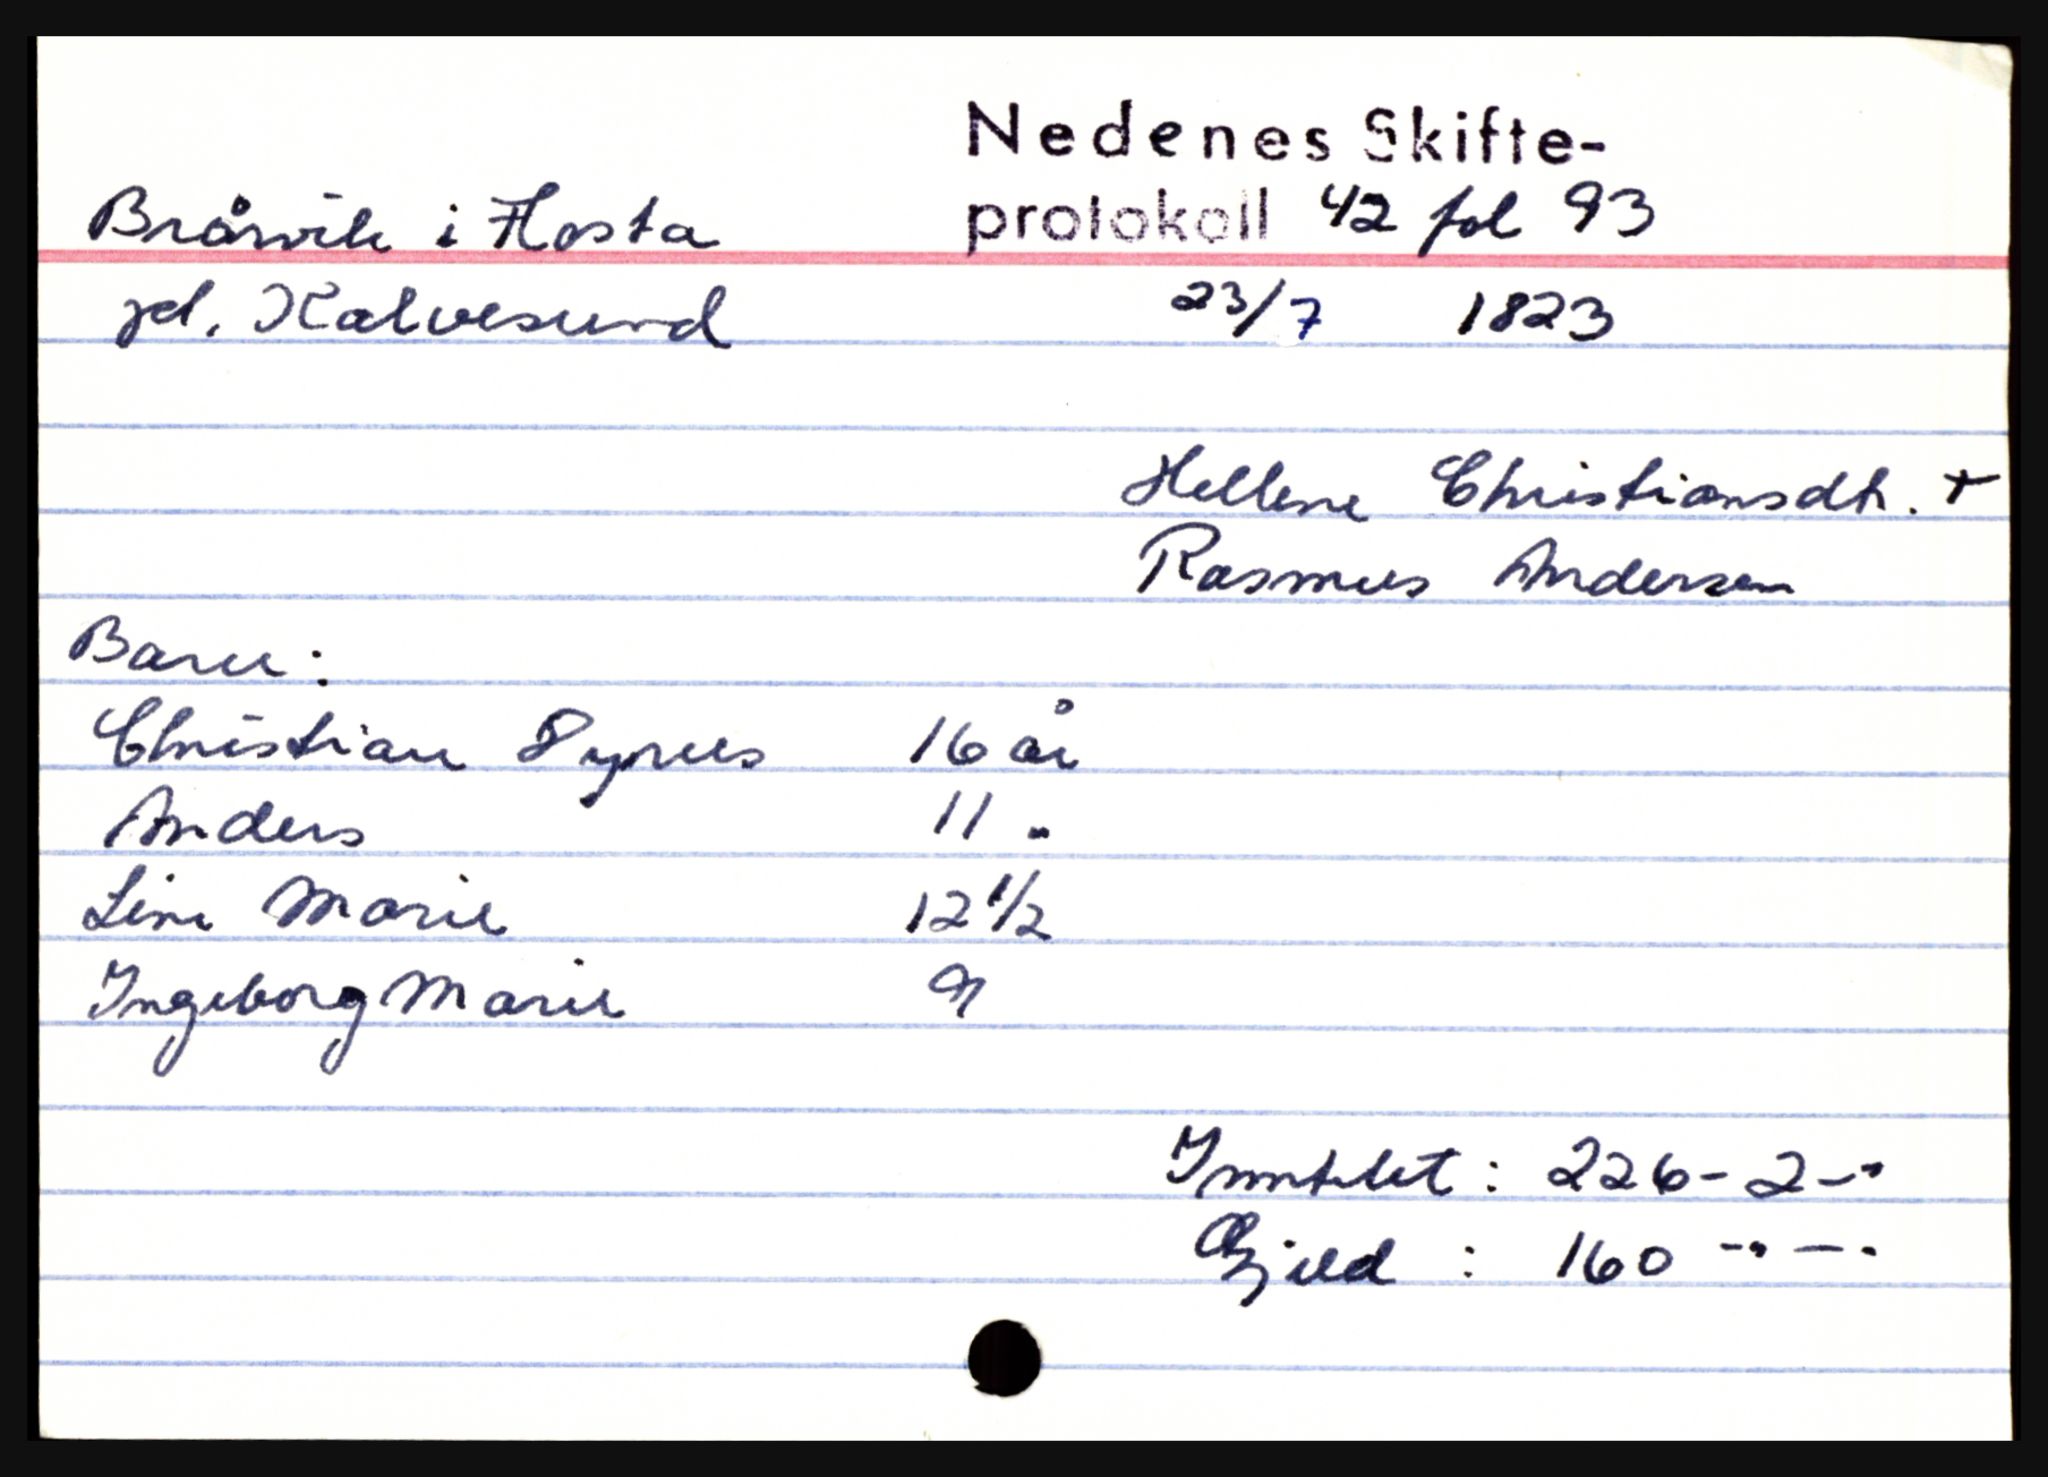 Nedenes Skifte-
Bråvik i Flosta protokoll 42 fol 93
pl. Kalvesund 23/7 1823
Hellene Christiansdtr. +
Rasmus Andersen
Barn:
Christian 16 år
Anders 11 "
Line Marie 12 1/2
Ingeborg Marie 9
Inntekt: 226-2-"
Gjeld : 160 -"-"